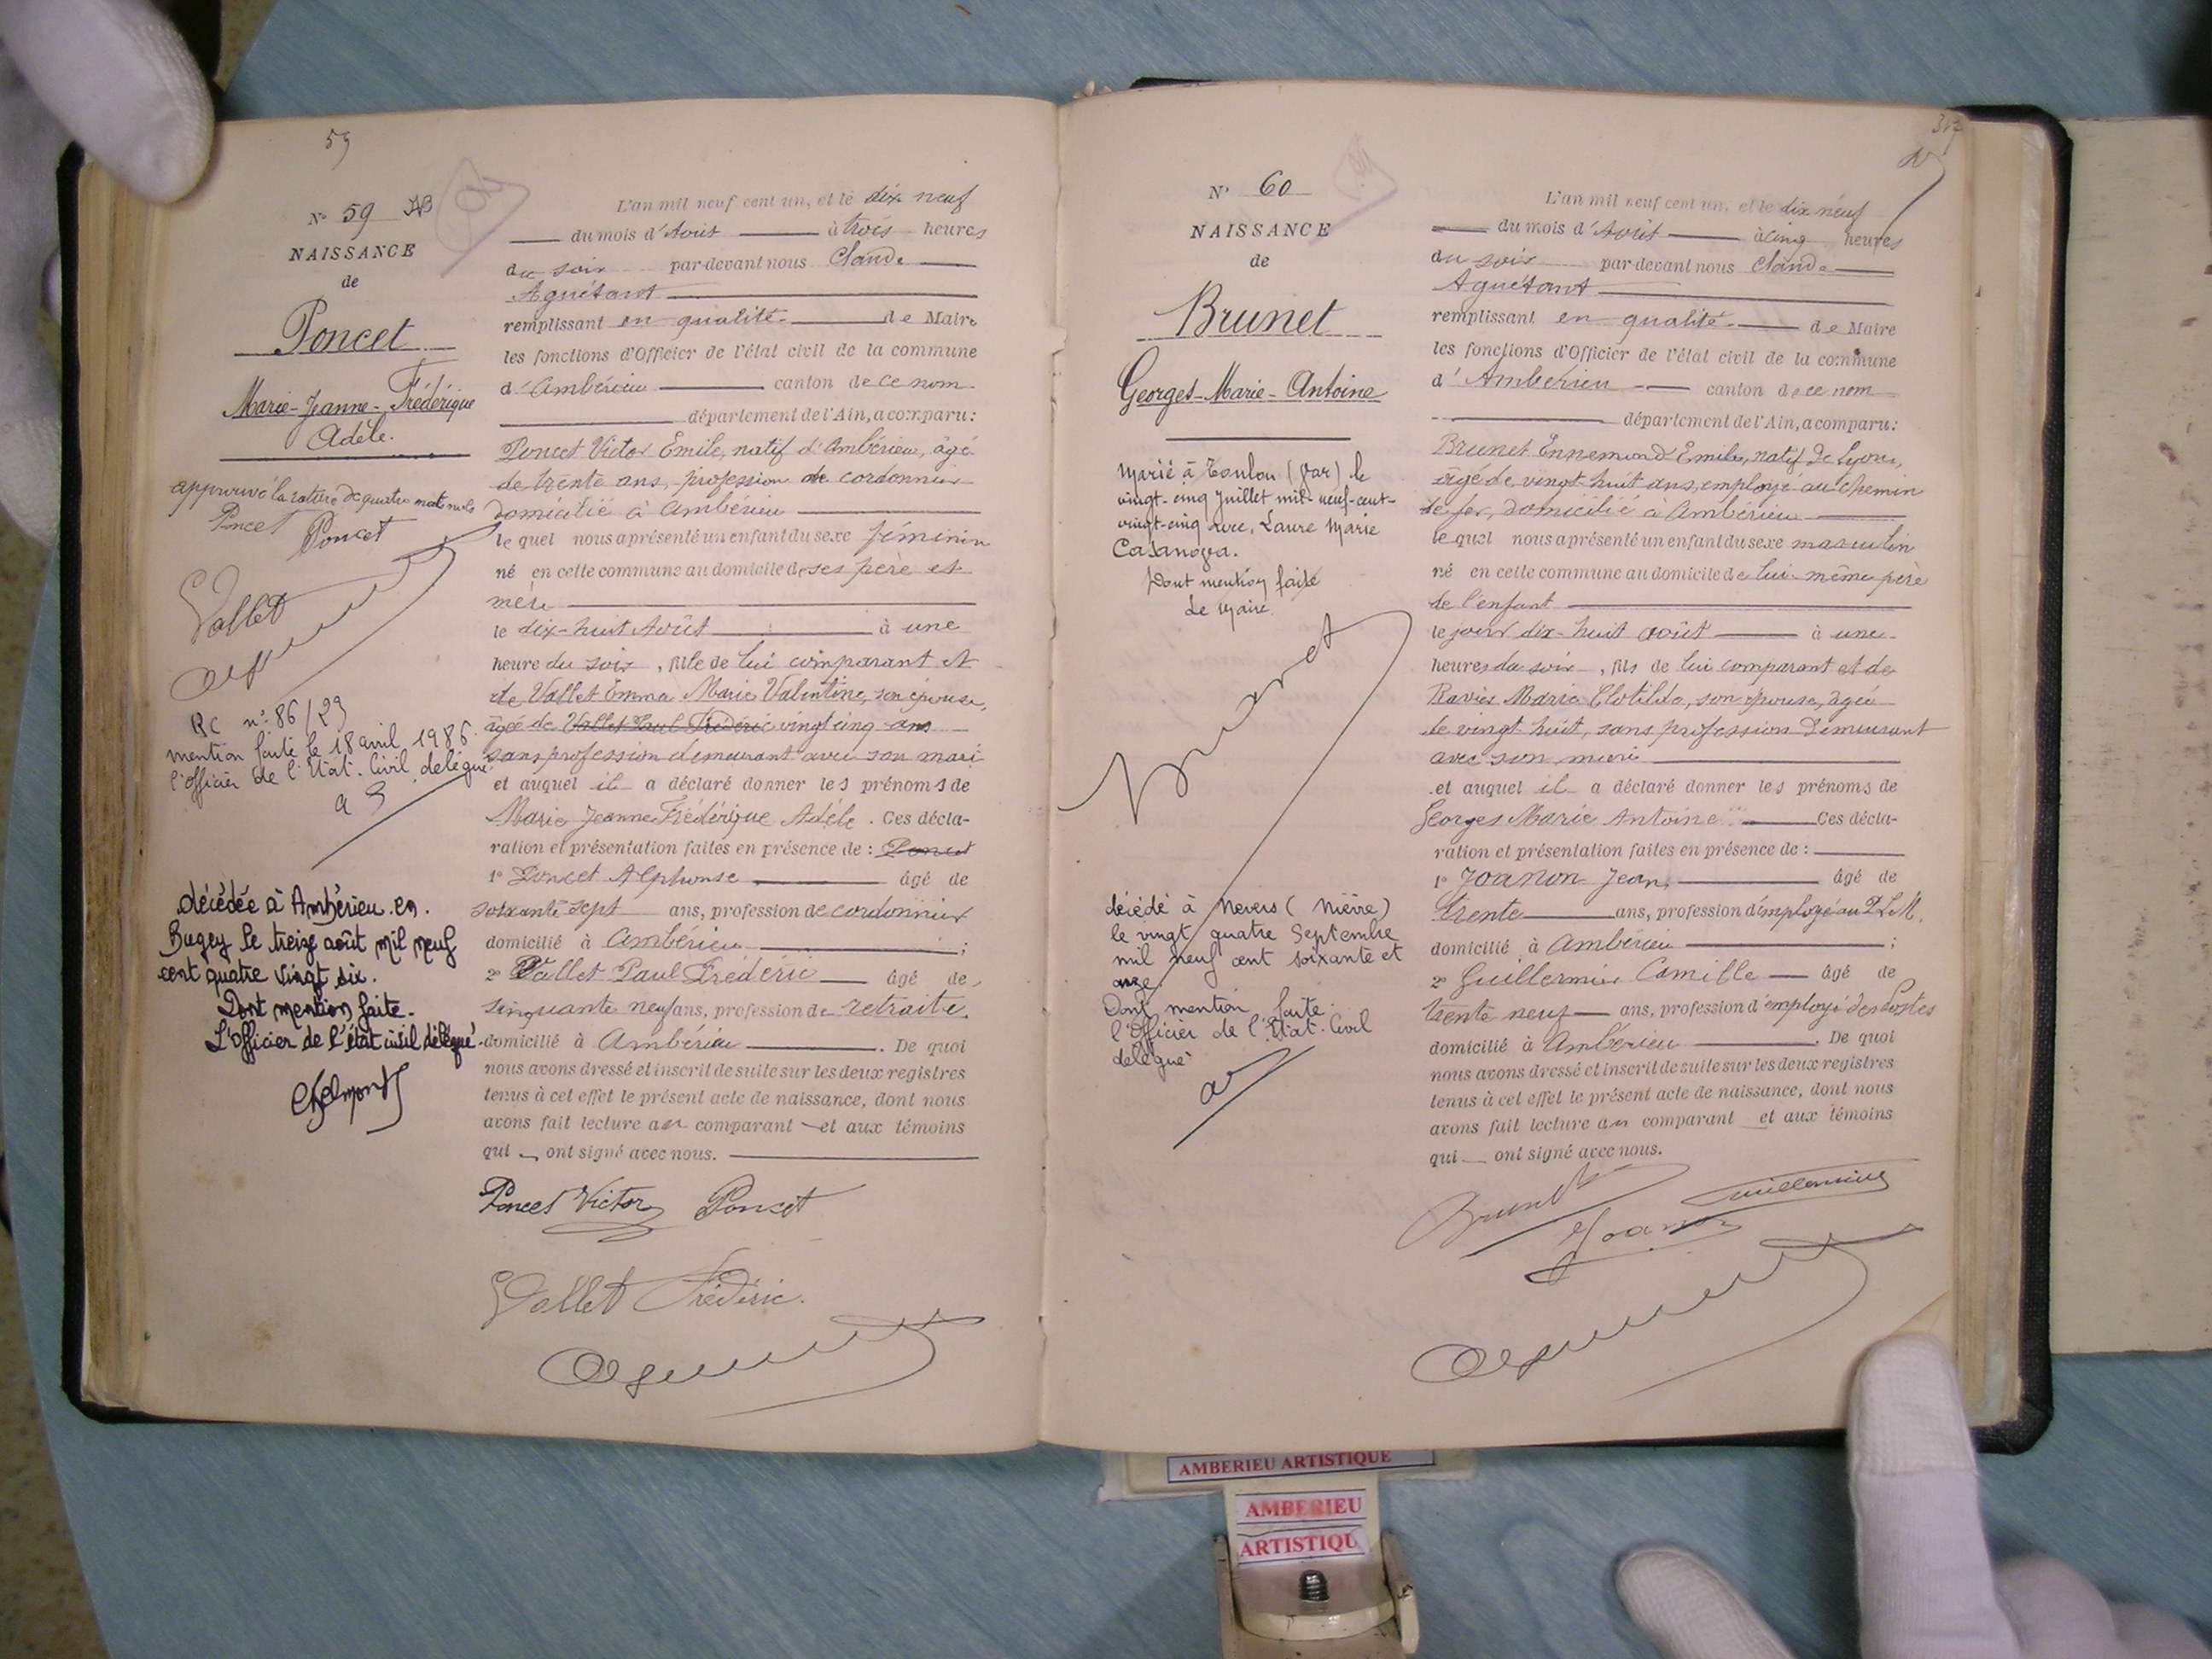 59
N° 59 AB
NAISSANCE
de
Poncet
Marie-Jeanne-Frédérique
Adèle.
approuvé la rature de quatre mots nuls
Poncet Poncet
Vallet
RC n° 86/29
mention faite le 18 avril 1986.
l'officier de l'Etat-Civil délégué
décédée à Ambérieu-en-
Bugey le treize août mil neuf
cent quatre vingt six.
Dont mention faite.
L'Officier de l'état civil délégué
L'an mil neuf cent un, et le dix neuf
du mois d'Août à trois heures
du soir par-devant nous Claude
Aguétant
remplissant en qualité de Maire
les fonctions d'Officier de l'état civil de la commune
d'Ambérieu canton de ce nom
département de l'Ain, a comparu :
Poncet Victor Emile, natif d'Ambérieu, âgé
de trente ans, profession de cordonnier
domicilié à Ambérieu
lequel nous a présenté un enfant du sexe féminin
né en cette commune au domicile de ses père et
mère
le dix-huit Août à une
heure du soir, fille de lui comparant et
de Vallet Emma Marie Valentine, son épouse,
âgée de Vallet Paul Frédéric vingt cinq ans
sans profession demeurant avec son mari
et auquel il a déclaré donner les prénoms de
Marie Jeanne Frédérique Adèle. Ces décla-
ration et présentation faites en présence de : Poncet
1° Poncet Alphonse âgé de
soixante sept ans, profession de cordonnier
domicilié à Ambérieu ;
2° Vallet Paul Frédéric âgé de
cinquante neuf ans, profession de retraité
domicilié à Ambérieu. De quoi
nous avons dressé et inscrit de suite sur les deux registres
tenus à cet effet le présent acte de naissance, dont nous
avons fait lecture au comparant et aux témoins
qui ont signé avec nous.
Poncet Victor Poncet
Vallet Frédéric
N° 60
NAISSANCE
de
Brunet
Georges-Marie-Antoine
Marié à Toulon (Var) le
vingt-cinq Juillet mil-neuf-cent-
vingt-cinq avec, Laure Marie
Casanova.
Dont mention faite
Le Maire.
Brunet
décédé à Nevers (Nièvre)
le vingt quatre Septembre
mil neuf cent soixante et
onze.
Dont mention faite.
l'officier de l'Etat-Civil
délégué
L'an mil neuf cent un, et le dix neuf
du mois d'Août à cinq heures
du soir par-devant nous Claude
Aguétant
remplissant en qualité de Maire
les fonctions d'Officier de l'état civil de la commune
d'Ambérieu canton de ce nom
département de l'Ain, a comparu :
Brunet Ennemond Emile, natif de Lyon,
âgé de vingt-huit ans, employé au chemin
de fer, domicilié à Ambérieu
lequel nous a présenté un enfant du sexe masculin
né en cette commune au domicile de lui-même père
de l'enfant
le jour dix-huit août à une
heures du soir, fils de lui comparant et de
Ravier Marie Clotilde, son épouse, âgée
de vingt huit, sans profession demeurant
avec son mari
et auquel il a déclaré donner les prénoms de
Georges Marie Antoine Ces décla-
ration et présentation faites en présence de :
1° Joanon Jean, âgé de
trente ans, profession d'employé au P.L.M.
domicilié à Ambérieu ;
2° Guillermin Camille âgé de
trente neuf ans, profession d'employé des Postes
domicilié à Ambérieu. De quoi
nous avons dressé et inscrit de suite sur les deux registres
tenus à cet effet le présent acte de naissance, dont nous
avons fait lecture au comparant et aux témoins
qui ont signé avec nous.
Brunet Guillermin
Joanon
AMBERIEU ARTISTIQUE
AMBERIEU
ARTISTIQU